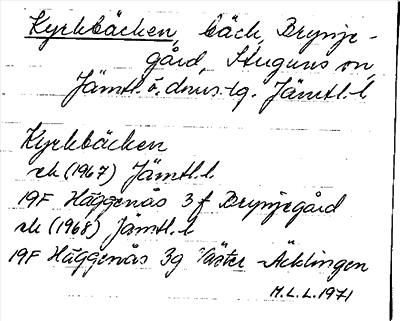 Kyrkbäcken, bäck, Brynje-
gård, Stuguns sn,
Jämtl. ö. dms. tg. Jämtl. l
Kyrkbäcken
rek (1967) Jämtl. l
19F Häggenås 3 f Brynjegård
rek (1968) Jämtl. l
19F Häggenås 3g Väster-Acklingen
M.L.L. 1971